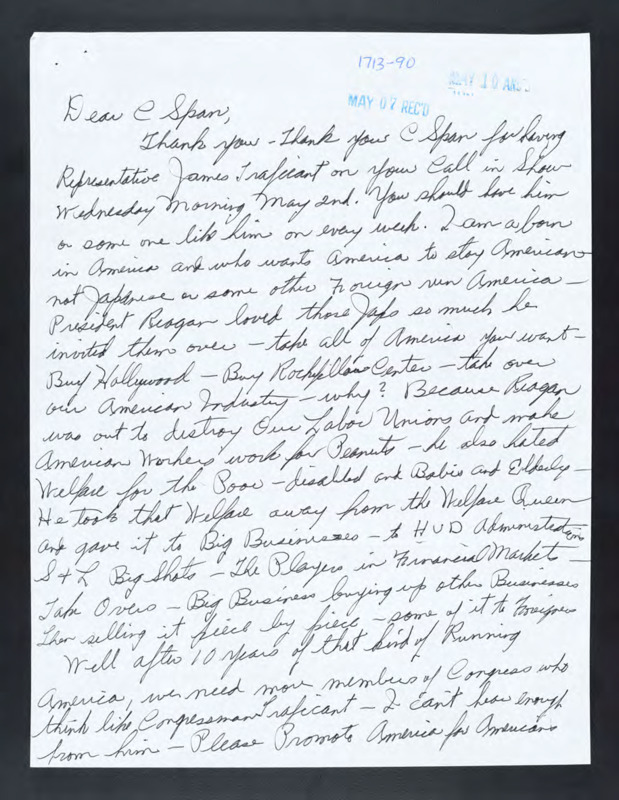 1713-90
MAY 10 ANS'D
MAY 07 REC'D
Dear C Span,
Thank you - thank you C Span for having
Representative James Traficant on your Call in Show
Wednesday Morning May 2nd. You should have him
or some one like him on every week. I am a born
in America and who wants America to stay American
not Japanese or some other Foreign run America -
President Reagan loved those Japs so much he
invited them over - take all of America you want -
Buy Hollywood - Buy Center - take over
our American Industry - why? Because Reagan
was out to destroy Our Labor Unions and make
American Workers work for Peanuts - he also hated
Welfare for the Poor - disabled and Babies and Elderly -
He took that Welfare away from the Welfare Queen
and gave it to Big Businesses - to HUD Administration
S & L Big Shots - The Players in Financial Markets -
Take Overs - Big Business buying up other Businesses
Then selling it piece by piece - some of it to Foreigners
Well after 10 years of that kind of Running
America, we need more members of Congress who
think like Congressman Traficant - I can't hear enough
from him - Please Promote America for Americans